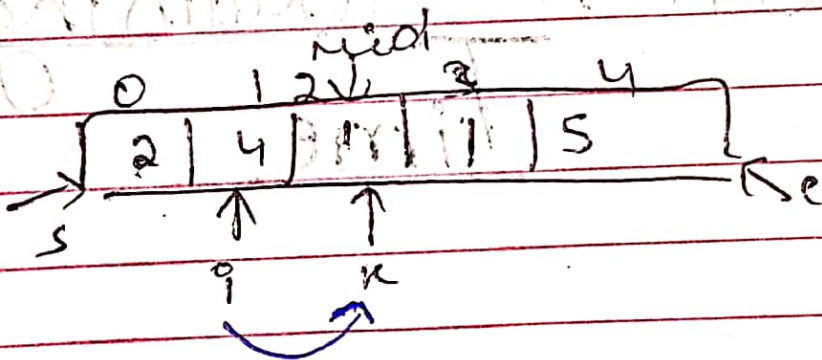 mid
0 1 2 3 4
2 4 1 5
s e
i k